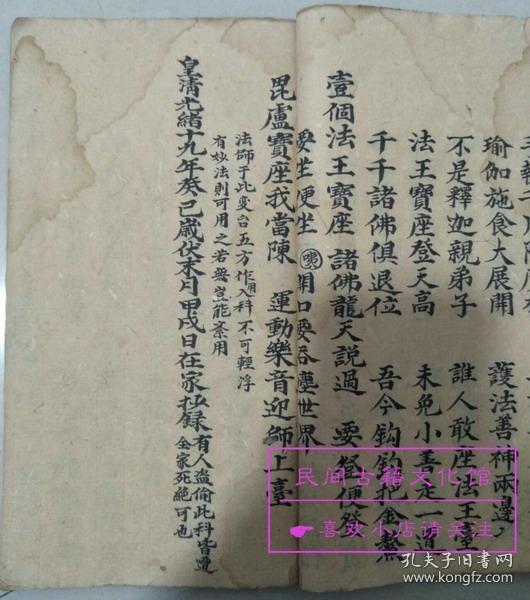 瑜伽施食大展開 護法善神兩邊
不是釋迦親弟子 誰人敢座法王臺
法王寶座登天高 未免小 走一道
千千諸佛俱退位 吾今 把金
壹個法王寶座 諸佛龍天説過 要登便登
要坐便坐 開口要吞塵世界
毘盧寶座我當陳 運動樂音迎師上臺
法師于此変台五方作用入科不可輕浮
有妙法則可用之若無豈能紊用
皇清光緒十九年癸巳歲伏末月甲戌日在家抄録
有人盗偷此科皆遭
全家死絶可也
民间古籍文化馆
喜欢小店请关注
孔夫子旧书网
www.kongfz.com